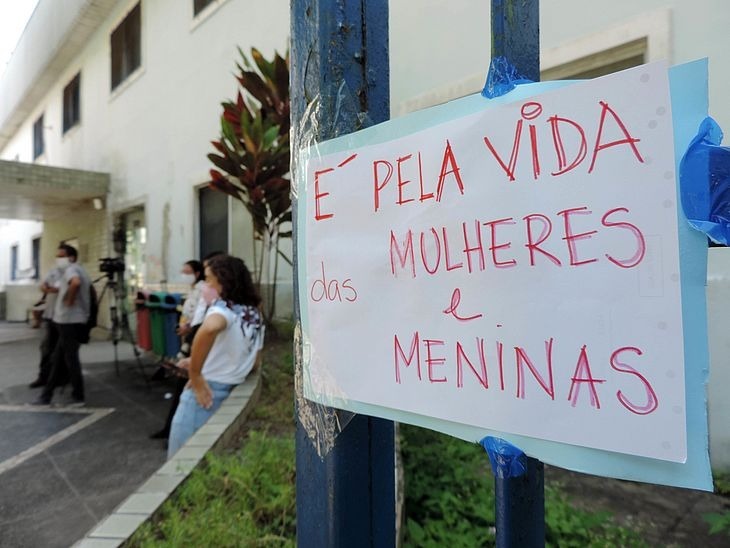 É PELA VIDA
das MULHERES
e
MENINAS